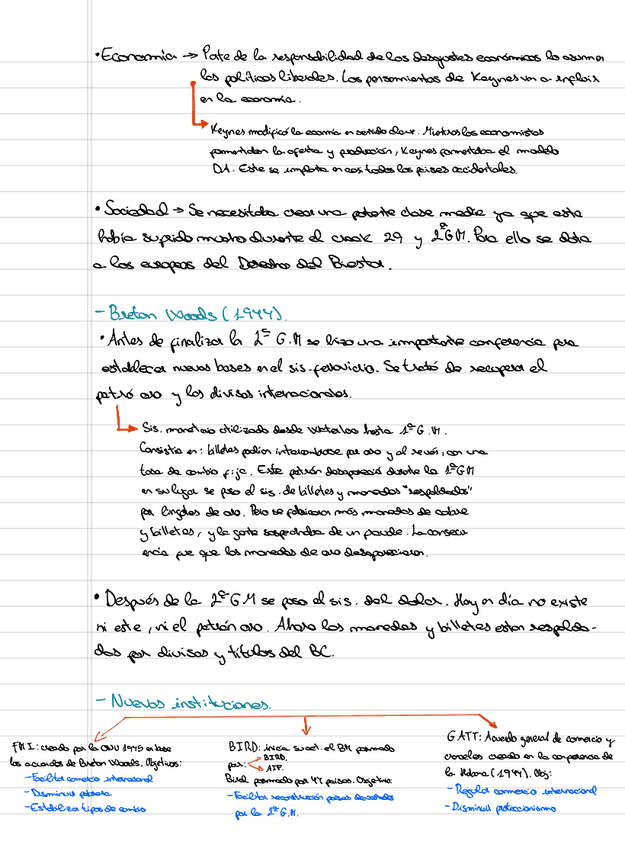 • Economía → Parte de la responsabilidad de los desajustes económicos lo asumen
los políticos liberales. Los pensamientos de Keynes van a influir
en la economía.
Keynes modificó la economía en sentido clave. Mientras los economistas
fomentaban la oferta y producción, Keynes fomentaba el modelo
DA. Este se implanta en casi todos los países occidentales.
• Sociedad → Se necesitaba crear una potente clase media ya que esta
había sufrido mucho durante el crack 29 y 2ª G.M. Para ello se dota
a los europeos del Derecho del Bienestar.
- Breton Woods (1944).
• Antes de finalizar la 2ª G.M se hizo una importante conferencia para
establecer nuevas bases en el sis. financiero. Se trató de recuperar el
patrón oro y las divisas internacionales.
Sis. monetario utilizado desde Waterloo hasta 1ª G.M.
Consistía en: billetes podían intercambiarse por oro y al revés, con una
tasa de cambio fija. Este patrón desapareció durante la 1ª GM
en su lugar se puso el sis. de billetes y monedas "respaldados"
por lingotes de oro. Pero se fabricaron más monedas de cobre
y billetes, y la gente sospechaba de un fraude. La consecu-
encia fue que las monedas de oro desaparecieron.
• Después de la 2ª G.M se puso el sis. del dolar. Hoy en día no existe
ni este, ni el patrón oro. Ahora las monedas y billetes estan respalda-
dos por divisas y títulos del BC.
- Nuevas instituciones.
FMI: creado por la ONU 1945 en base
los acuerdos de Breton Woods. Objetivos:
- Facilitar comercio internacional
- Disminuir pobreza
- Estabilizar tipos de cambio
BIRD: inicia su act. el BM formado
por: BIRD.
AIF.
Bird formado por 44 países. Objetivo:
- Facilitar reconstrucción países devastados
por la 2ª G.M.
GATT: Acuerdo general de comercio y
aranceles creado en la conferencia de
la Habana (1947). Obj:
- Regular comercio internacional
- Disminuir proteccionismo